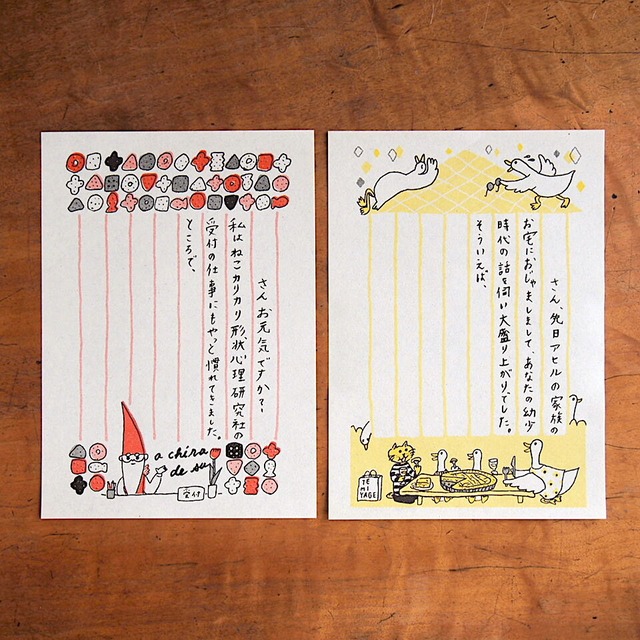 さんお元気ですか?
私はねこカリカリ形状心理研究社の
受付の仕事にもやっと慣れてきました。
ところで、
a chira
de su
受付
さん、先日アヒルの家族の
お宅におじゃましまして、あなたの幼少
時代の話を伺い大盛り上がりでした。
そういえば、
TE
MI
YAGE